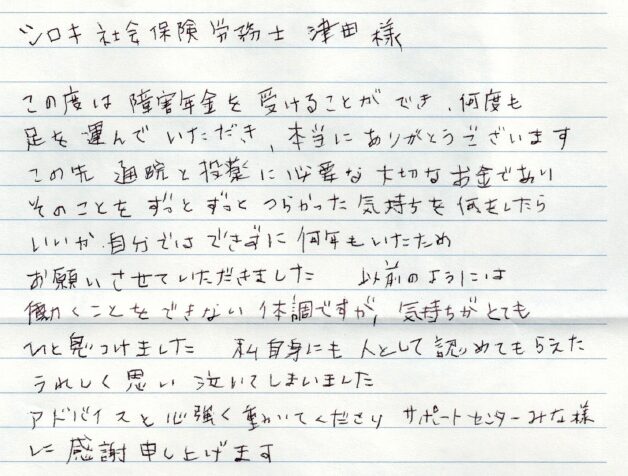 シロキ社会保険労務士 津田様
この度は障害年金を受けることができ、何度も
足を運んでいただき、本当にありがとうございます
この先 通院と投薬に必要な大切なお金であり
そのことをずっとずっとつらかった気持ちを何をしたら
いいか、自分ではできずに何年もいたため
お願いさせていただきました 以前のようには
働くことをできない体調ですが、気持ちがとても
ひと息つけました 私自身にも人として認めてもらえた
うれしく思い泣いてしまいました
アドバイスと心強く動いてくださり サポートセンターみな様
に感謝申し上げます